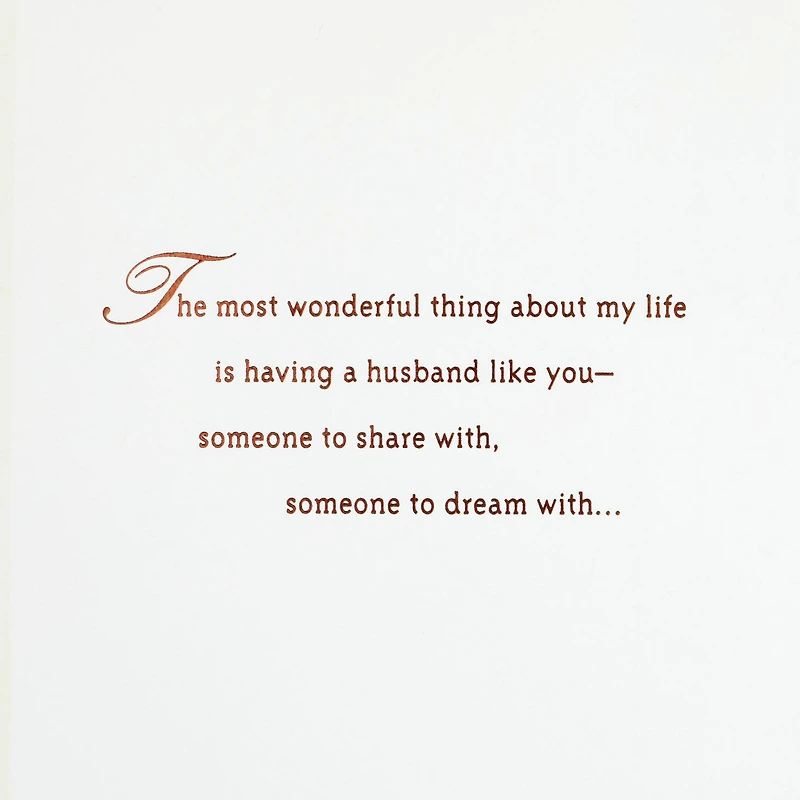 The most wonderful thing about my life
is having a husband like you—
someone to share with,
someone to dream with...